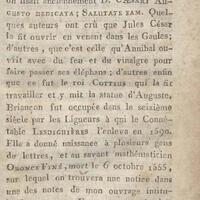 on lisait anciennement D. CÆSARI AU-
GUSTO DEDICATA; SALUTATE EAM. Quel-
ques auteurs ont cru que Jules César
la fit ouvrir en venant dans les Gaules;
d'autres, que c'est celle qu'Annibal ou-
vrit avec du feu et du vinaigre pour
faire passer ses éléphans; d'autres enfin
que ce fut le roi COTTIUS qui la fit
travailler et y mit la statue d'Auguste.
Briançon fut occupée dans le seizième
siècle par les Ligueurs à qui le Conné-
table LESDIGUIÈRES l'enleva en 1590.
Elle a donné naissance à plusieurs gens
de lettres, et au savant mathématicien
ORONCE FINÉ, mort le 6 octobre 1555,
sur lequel on trouvera une notice dans
une des notes de mon ouvrage intitu-